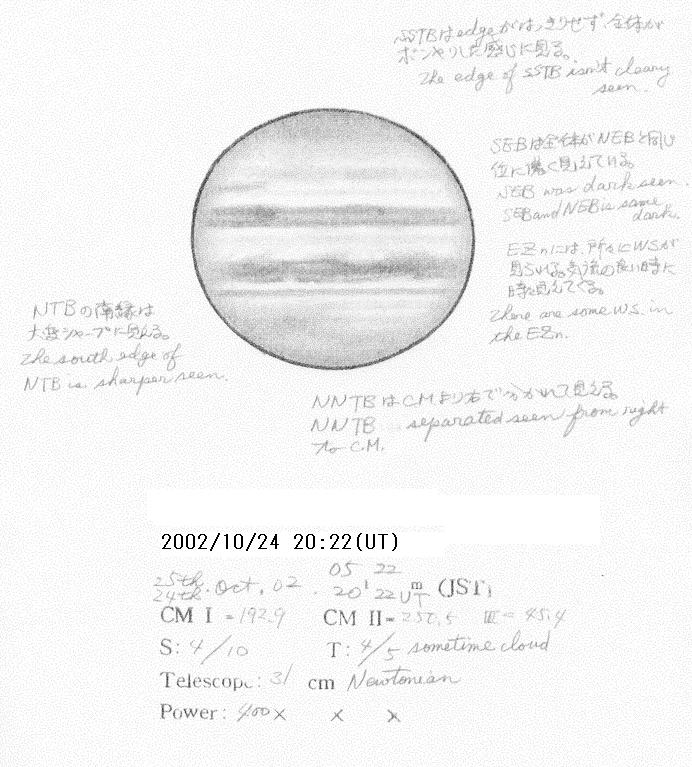 SSTBはedgeがはっきりせず、全体が
ボンヤリした感じに見る。
The edge of SSTB isn't cleary
seen.
SEBは全体がNEBと同じ
位に濃く見えている。
SEB was dark seen.
SEB and NEB is same
dark.
EZnには、所々にWSが
見られる。気流の良い時に
時々見えてくる。
There are some WS. in
the EZn.
NTBの南縁は
大変シャープに見える。
The south edge of
NTB is sharper seen.
NNTBはCMより右で分かれて見える
NNTB separated seen from right
to C.M.
2002/10/24 20:22(UT)
25th 05 22
24th. Oct, 02. 20h 22m UT (JST)
CM I = 192.9 CM II = III = 45.4
S: 4/10 T: 4/5 sometime cloud
Telescope: 31 cm Newtonian
Power: 400× × ×